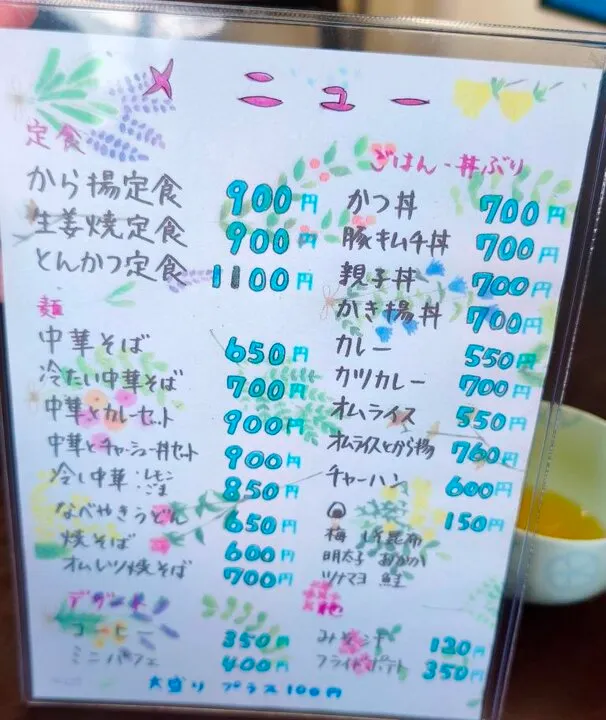 メニュー
定食
から揚定食 900円
生姜焼定食 900円
とんかつ定食 1100円
麺
中華そば 650円
冷たい中華そば 700円
中華とカレーセット 900円
中華とチャーシュー丼セット 900円
冷し中華:レモン ごま 850円
なべやきうどん 650円
焼そば 600円
オムレツ焼そば 700円
デザート
コーヒー 350円
ミニパフェ 400円
ごはん・丼ぶり
かつ丼 700円
豚キムチ丼 700円
親子丼 700円
かき揚丼 700円
カレー 550円
カツカレー 700円
オムライス 550円
オムライスとから揚 760円
チャーハン 600円
150円
梅 昆布
明太子 おかか
ツナマヨ 鮭
他
みそ汁 120円
フライドポテト 350円
大盛り プラス100円